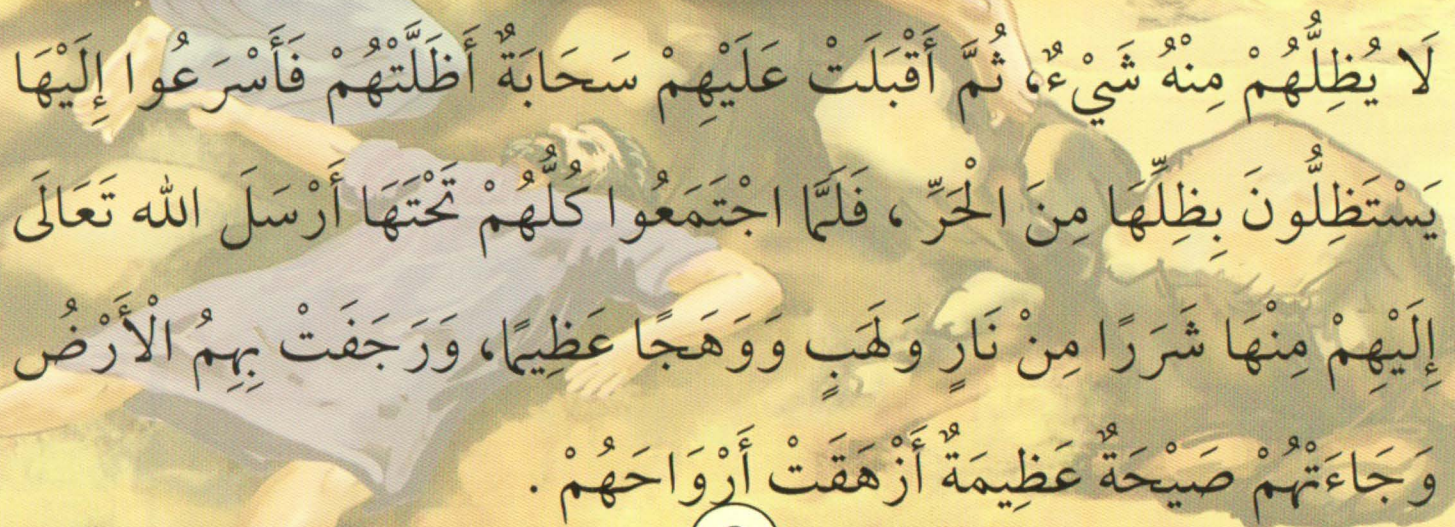 لَا يُظِلُّهُمْ مِنْهُ شَيْءٌ، ثُمَّ أَقْبَلَتْ عَلَيْهِمْ سَحَابَةٌ أَظَلَّتْهُمْ فَأَسْرَعُوا إِلَيْهَا
يَسْتَظِلُّونَ بِظِلِّهَا مِنَ الْحَرِّ ، فَلَمَّا اجْتَمَعُوا كُلُّهُمْ تَحْتَهَا أَرْسَلَ الله تَعَالَى
إِلَيْهِمْ مِنْهَا شَرَرًا مِنْ نَارٍ وَلَهَبٍ وَوَهَجًا عَظِيمًا، وَرَجَفَتْ بِهِمُ الْأَرْضُ
وَجَاءَتْهُمْ صَيْحَةٌ عَظِيمَةٌ أَزْهَقَتْ أَرْوَاحَهُمْ .